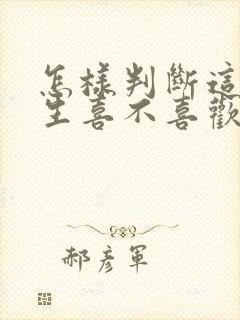 怎樣判斷這
生喜不喜歡
郝彦軍